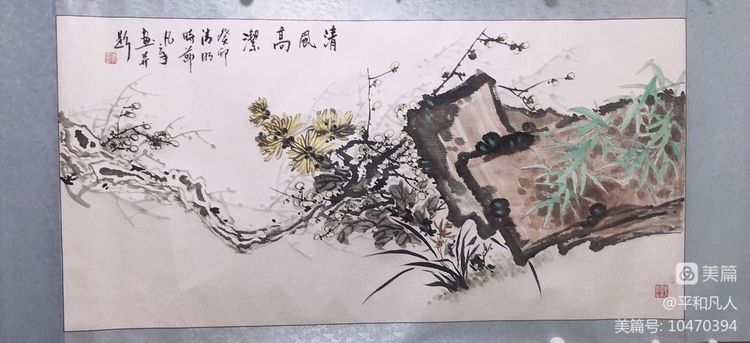 清風高潔
癸卯
清明
時節
凡亭
畫并
題
美篇
@平和凡人
美篇号: 10470394